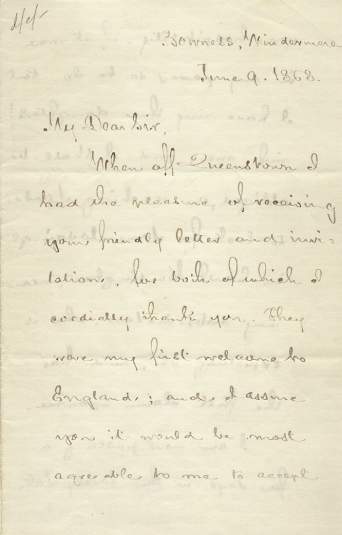 Bowness, Windermere
June 9. 1868.
My Dear Sir,
When off Queenstown I
had the pleasure of receiving
your friendly letter and invi-
tation, for both of which I
cordially thank you. They
were my first welcome to
England; and I assure
you it would be most
agreeable to me to accept